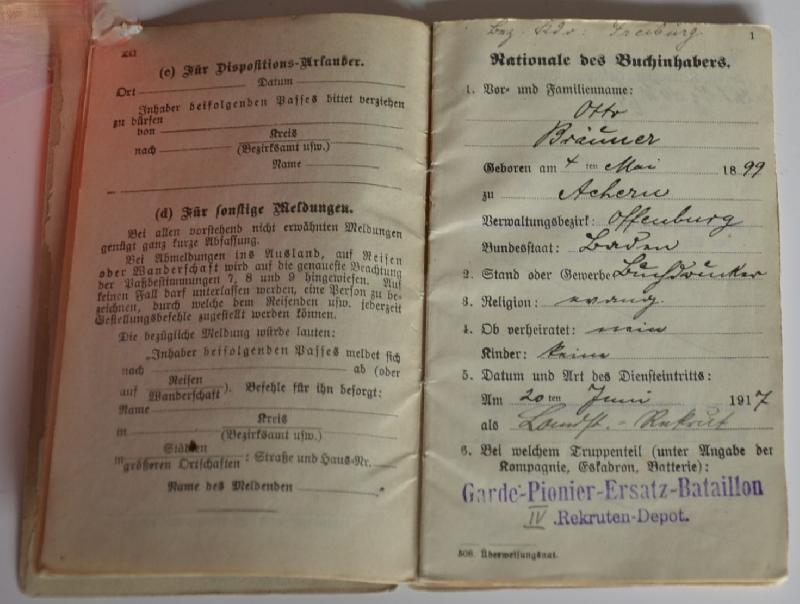 XXI
(c) Für Dispositions-Urlauber.
Ort Datum
Inhaber beifolgenden Passes bittet verziehen
zu dürfen
von Kreis
nach (Bezirksamt usw.)
Name
(d) Für sonstige Meldungen.
Bei allen vorstehend nicht erwähnten Meldungen
genügt ganz kurze Abfassung.
Bei Abmeldungen ins Ausland, auf Reisen
oder Wanderschaft wird auf die genaueste Beachtung
der Paßbestimmungen 7, 8 und 9 hingewiesen. Auf
keinen Fall darf unterlassen werden, eine Person zu be-
zeichnen, durch welche dem Reisenden usw. jederzeit
Gestellungsbefehle zugestellt werden können.
Die bezügliche Meldung würde lauten:
„Inhaber beifolgenden Passes meldet sich
nach ab (oder
auf Reisen
Wanderschaft). Befehle für ihn besorgt:
Name
in Kreis
(Bezirksamt usw.)
in Städten
größeren Ortschaften: Straße und Haus-Nr.
Name des Meldenden "
Bez. Kdo. Freiburg.
1
Nationale des Buchinhabers.
1. Vor- und Familienname:
Otto
Bräuner
Geboren am 4 ten Mai 1899
zu Achern
Verwaltungsbezirk: Offenburg
Bundesstaat: Baden
2. Stand oder Gewerbe Buchdrucker
3. Religion: evang.
4. Ob verheiratet: nein
Kinder: keine
5. Datum und Art des Diensteintritts:
Am 20 ten Juni 1917
als Landst. - Rekrut
6. Bei welchem Truppenteil (unter Angabe der
Kompagnie, Eskadron, Batterie):
Garde-Pionier-Ersatz-Bataillon
IV .Rekruten-Depot.
506. Überweisungsnat.